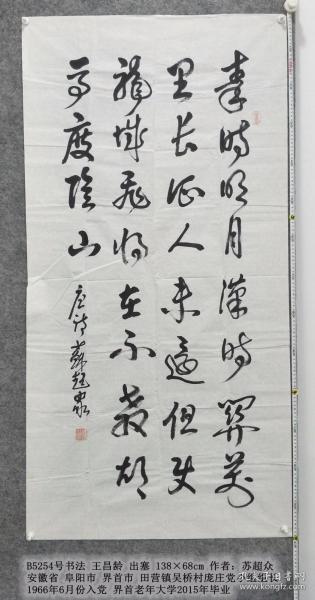 秦时明月漢时關萬
里长征人未還但使
龍城飛将在不教胡
马度陰山
唐诗 苏超众
B5254号书法 王昌龄 出塞 138×68cm 作者：苏超众
安徽省 阜阳市 界首市 田营镇吴桥村庞庄党小组组长
1966年6月份入党 界首老年大学2015年毕业